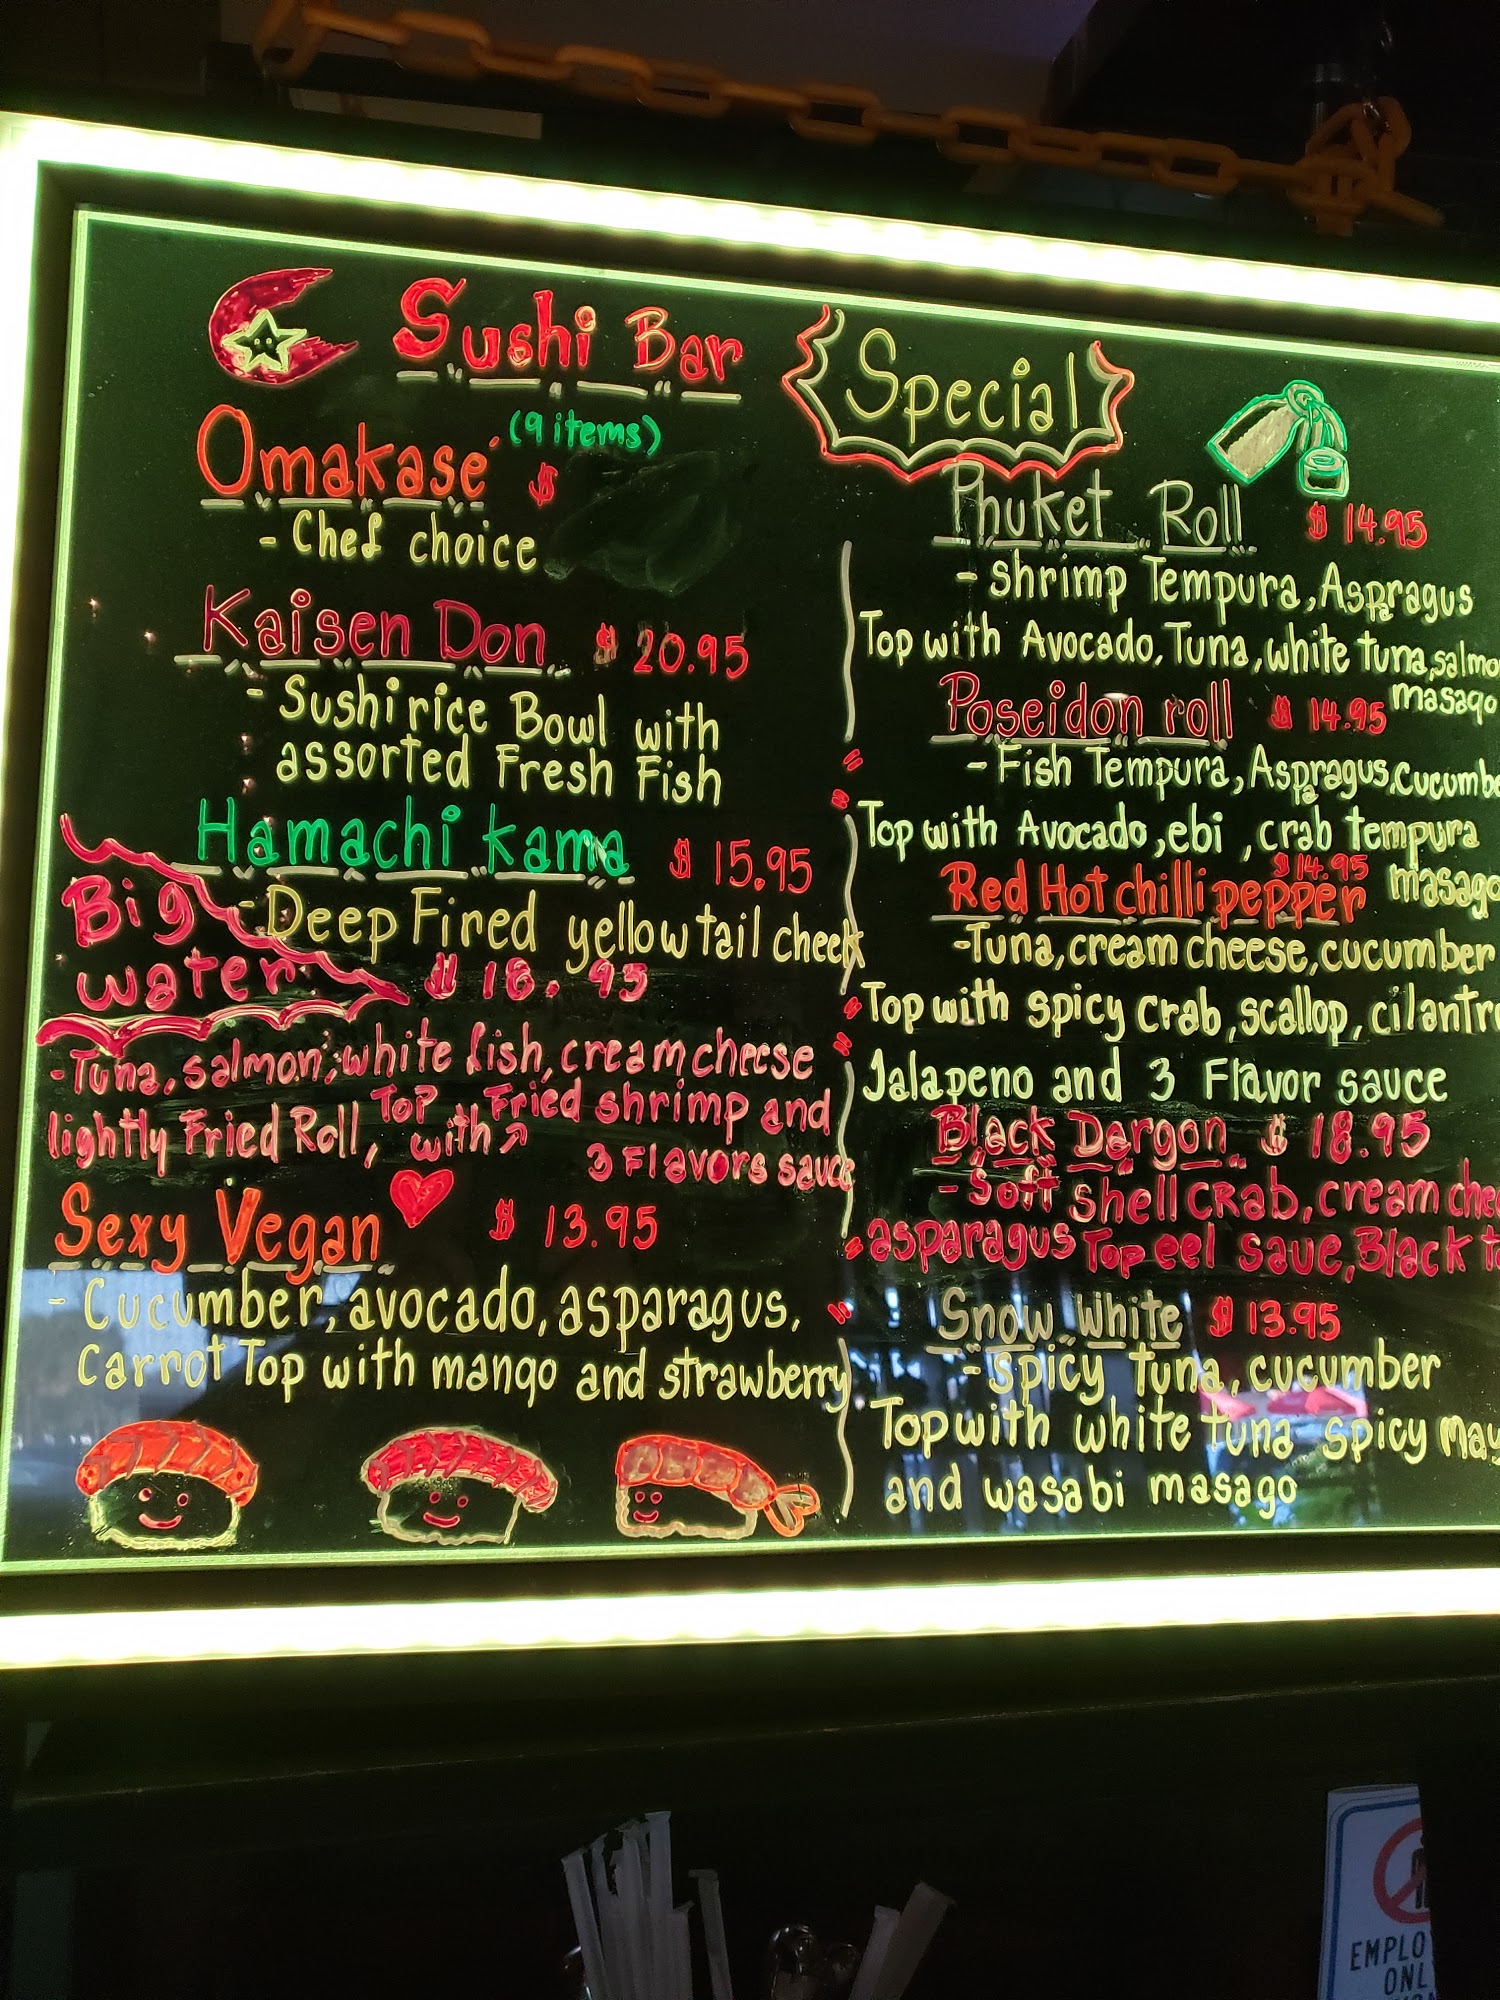 Sushi Bar
Special
Omakase (9 items) $
- Chef choice
Kaisen Don $ 20.95
- Sushi rice Bowl with
assorted Fresh Fish
Hamachi kama $ 15.95
- Deep Fired yellow tail cheek
Big
water $ 18.95
- Tuna, salmon, white fish, cream cheese
lightly Fried Roll, Top with Fried shrimp and
3 Flavors sauce
Sexy Vegan $ 13.95
- Cucumber, avocado, asparagus,
carrot Top with mango and strawberry
Phuket Roll $ 14.95
- shrimp Tempura, Aspragus
Top with Avocado, Tuna, white tuna, salmo
masago
Poseidon roll $ 14.95
- Fish Tempura, Aspragus, cucumbe
Top with Avocado, ebi, crab tempura
masago
Red Hot chilli pepper $ 14.95
- Tuna, cream cheese, cucumber
Top with spicy crab, scallop, cilantro
Jalapeno and 3 Flavor sauce
Black Dargon $ 18.95
- Soft shell CRab, cream chee
asparagus Top eel saue, Black to
Snow White $ 13.95
- spicy tuna, cucumber
Top with white tuna spicy may
and wasabi masago
EMPLO
ONL